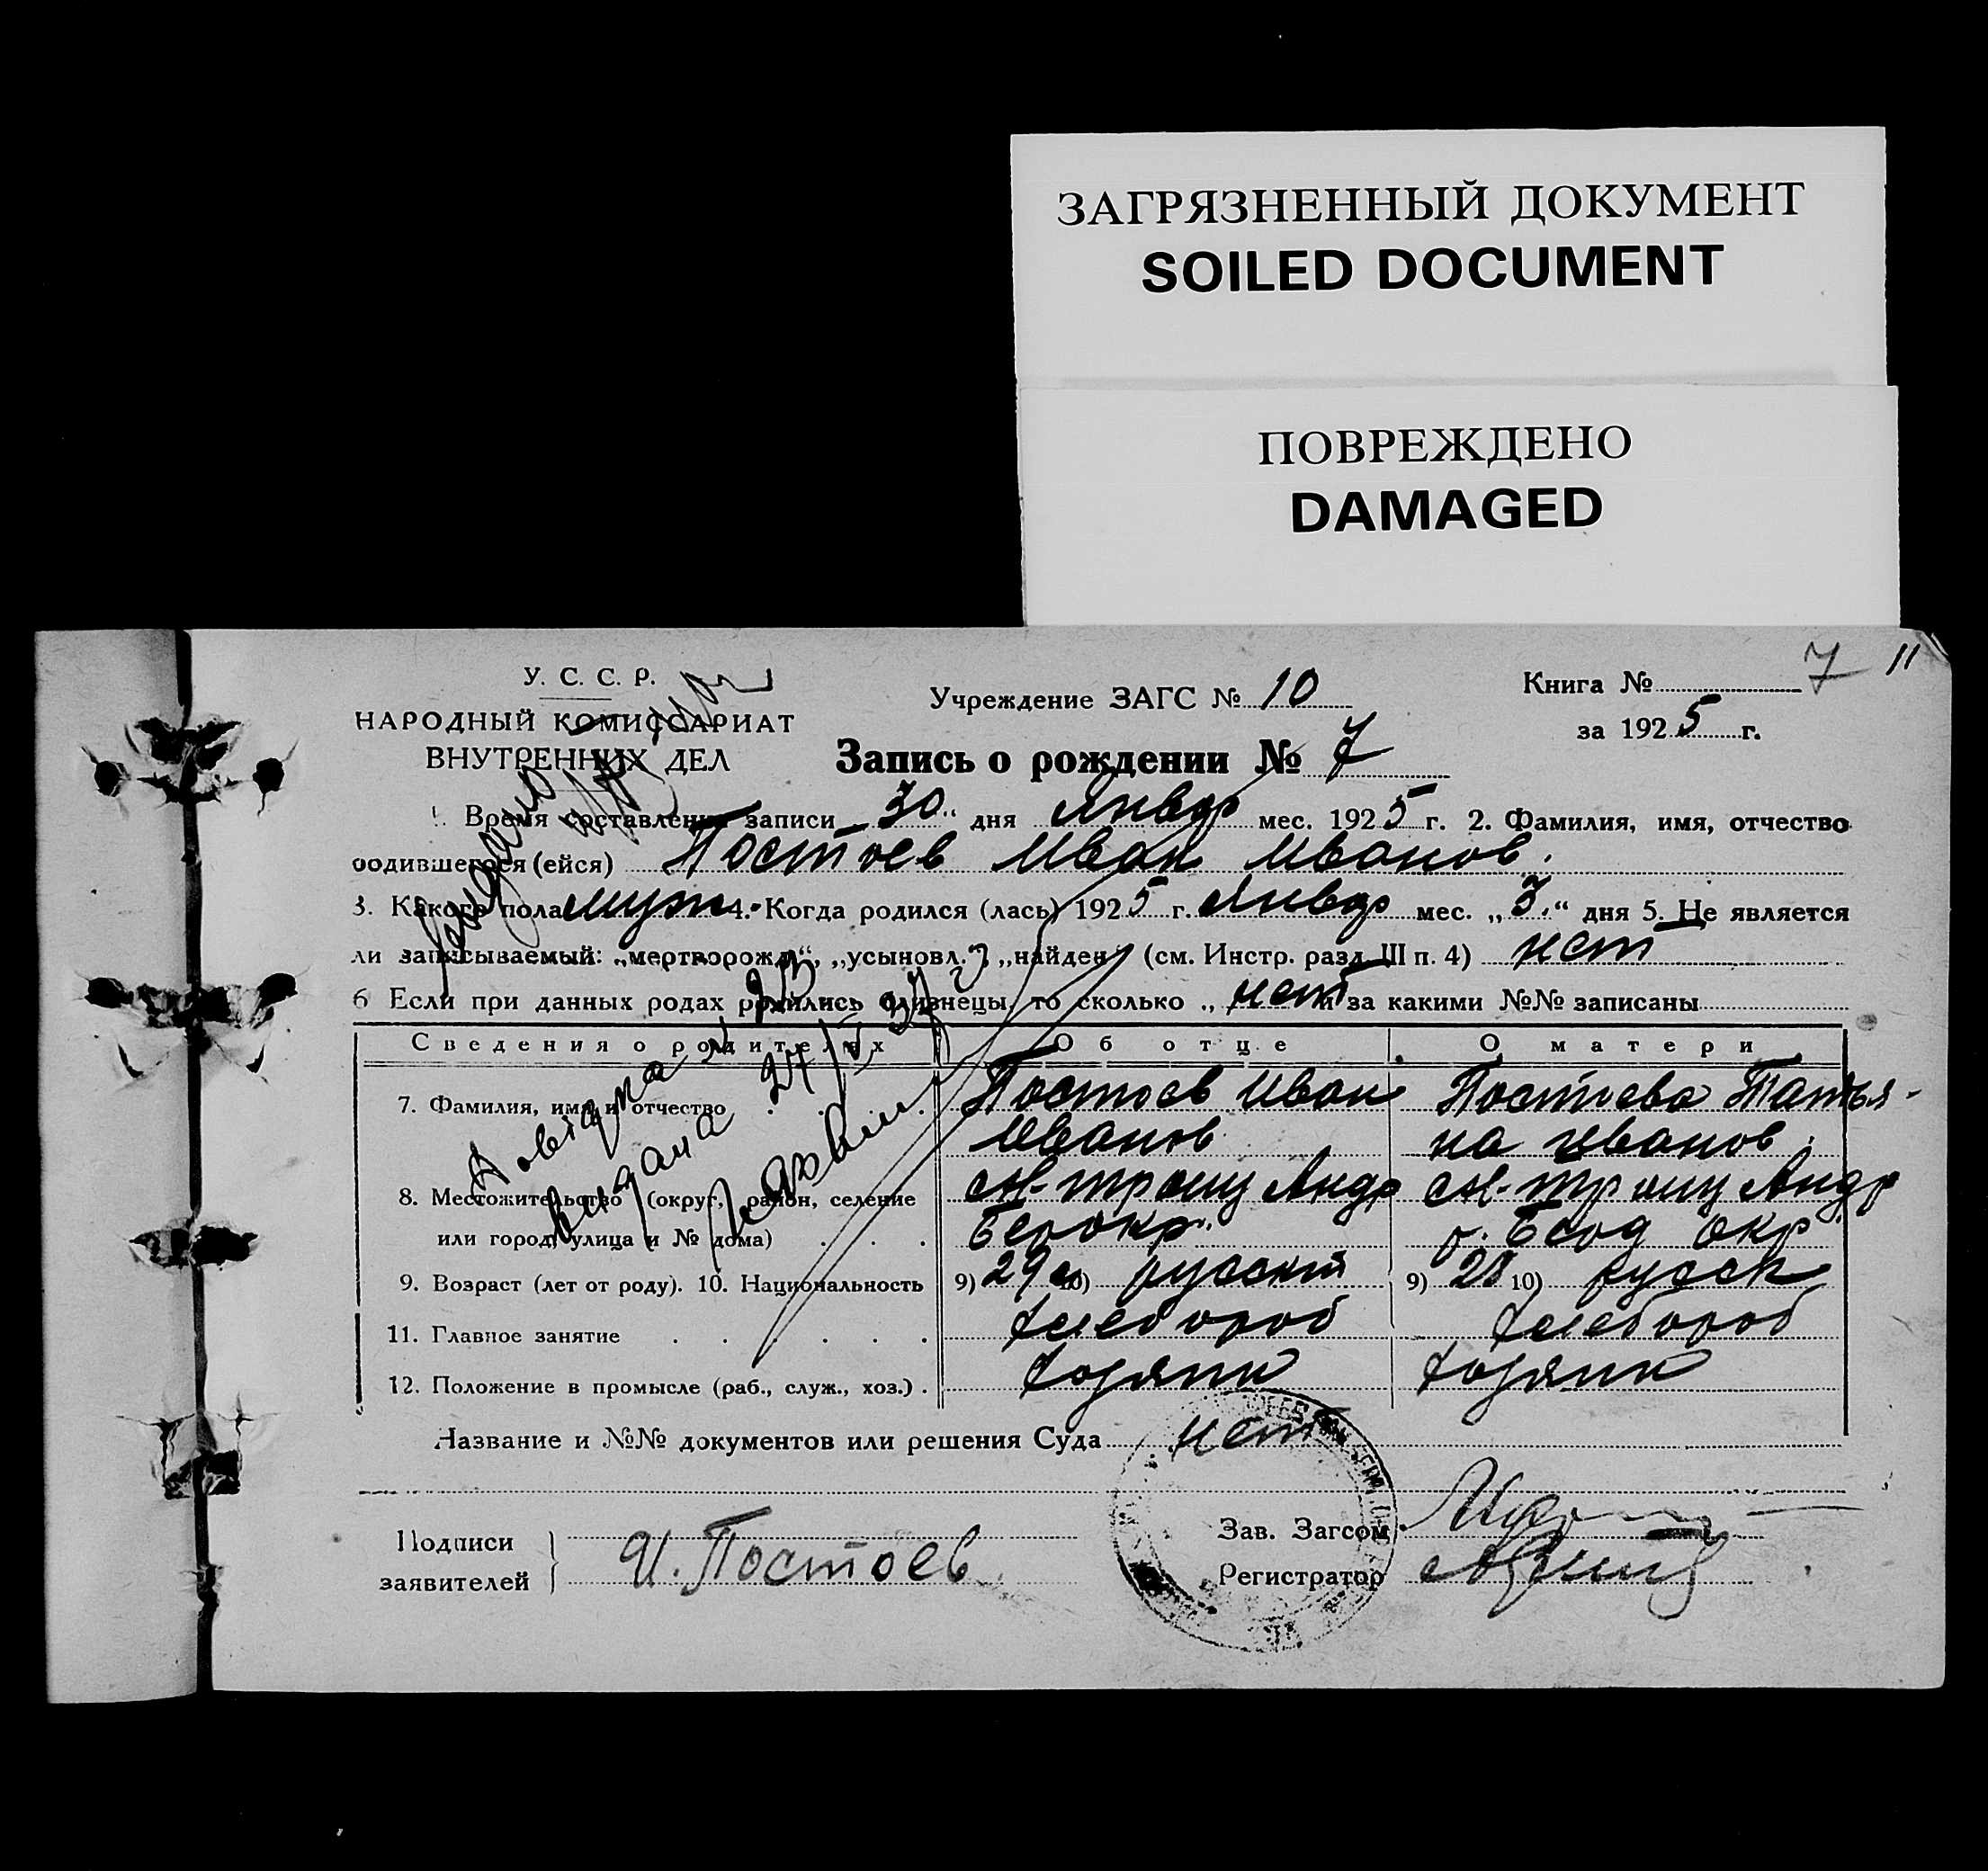 ЗАГРЯЗНЕННЫЙ ДОКУМЕНТ
SOILED DOCUMENT
ПОВРЕЖДЕНО
DAMAGED
7 11
У. С. С. Р.
НАРОДНЫЙ КОМИССАРИАТ
ВНУТРЕННИХ ДЕЛ
Учреждение ЗАГС № 10
Книга №
за 1925 г.
Запись о рождении № 7
1. Время составления записи 30 " дня Январ мес. 1925 г. 2. Фамилия, имя, отчество
родившегося (ейся) Постоев Иван Иванов.
3. Какого пола муж 4. Когда родился (лась) 1925 г. Январ мес. „ 3. " дня 5. Не является
ли записываемый: „мертворожд", „усыновл.", „найден" (см. Инстр. разд. III п. 4) нет
6 Если при данных родах родились близнецы, то сколько „ нет и за какими №№ записаны
Сведения о родителях Об отце О матери
7. Фамилия, имя и отчество Постоев Иван Иванов Постоева Татья-
на Иванов.
8. Местожительство (округ, район, селение
или город, улица и № дома)
9. Возраст (лет от роду). 10. Национальность 9) 29 10) русский 9) 28 10) русск
11. Главное занятие хлебороб хлебороб
12. Положение в промысле (раб., служ., хоз.) хозяин хозяин
Название и №№ документов или решения Суда нет
Подписи
заявителей И. Постоев
Зав. Загсом
Регистратор
выдана 27